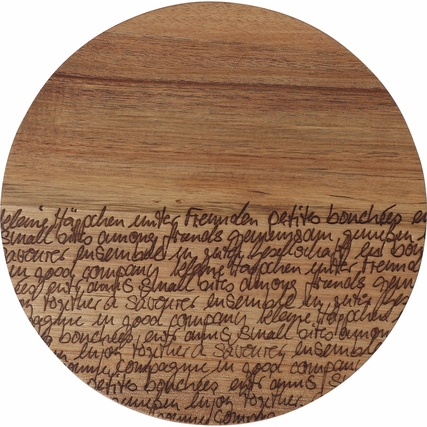 kleine Häppchen unter Freunden petites bouchées en
small bites among friends gemeinsam geniessen
savourer ensemble in guter Gesellschaft les bou
in good company kleine Häppchen unter Freund
ées entre amis small bites among friends gem
enjoy together à savourer ensemble in guter Gese
compagnie in good company kleine Häppchen
es bouchées entre amis small bites among
enjoy together à savourer ensemble
compagnie in good company
petites bouchées entre amis s
geniessen enjoy together
compagnie